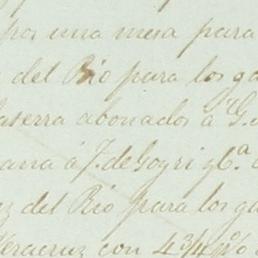 por una mesa para
del Rio para los ga
laserra abonados a G.
ana á J. de Goyri y Cª.
z del Rio para los ga
Veracruz con 4 3/4 %